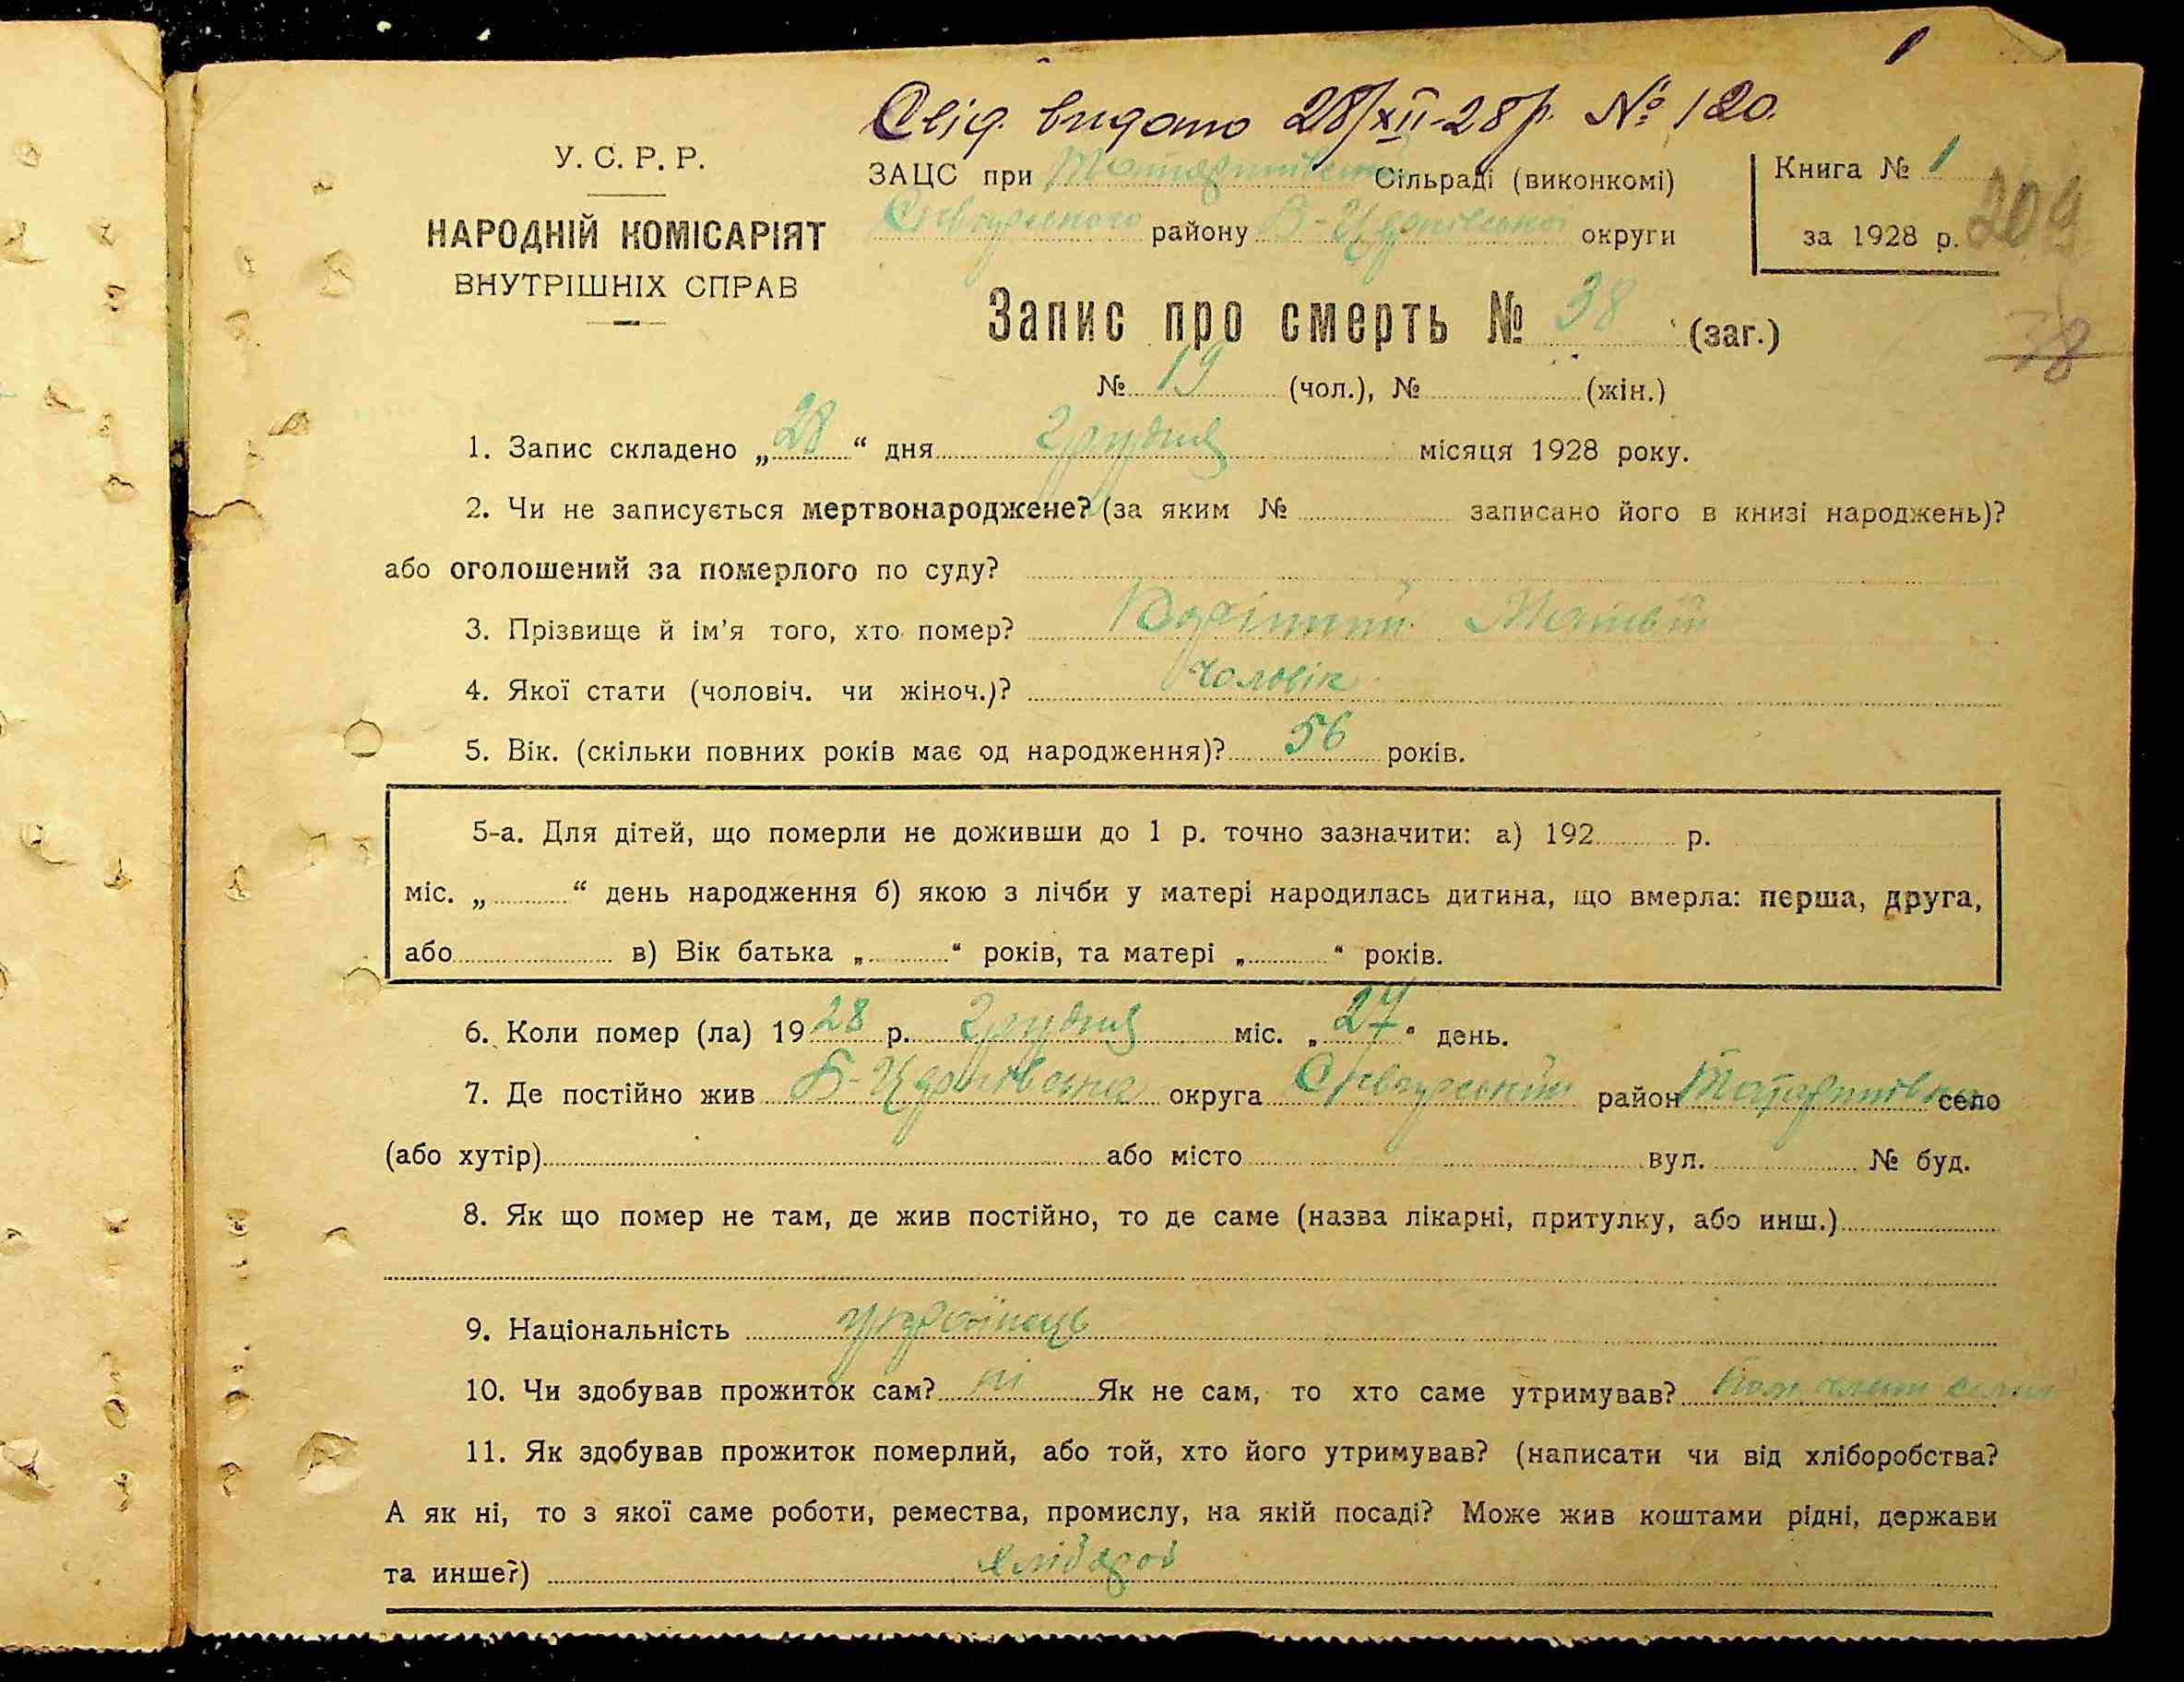 1
Свід. видано 28/XII-28р. № 120.
У. С. Р. Р.
НАРОДНІЙ КОМІСАРІЯТ
ВНУТРІШНІХ СПРАВ
ЗАЦС при Татаринівській Сільраді (виконкомі)
району Б-Церківської округи
Книга № 1
за 1928 р.
209
38
Запис про смерть № 38 (заг.)
№ 19 (чол.), № (жін.)
1. Запис складено „28“ дня грудня місяця 1928 року.
2. Чи не записується мертвонароджене? (за яким № записано його в книзі народжень)?
або оголошений за померлого по суду?
3. Прізвище й ім’я того, хто помер? Матвій
4. Якої стати (чоловіч. чи жіноч.)? чоловік
5. Вік. (скільки повних років має од народження)? 56 років.
5-а. Для дітей, що померли не доживши до 1 р. точно зазначити: а) 192 р.
міс. „ “ день народження б) якою з лічби у матері народилась дитина, що вмерла: перша, друга,
або в) Вік батька „ “ років, та матері „ “ років.
6. Коли помер (ла) 1928 р. грудня міс. „27“ день.
7. Де постійно жив Б-Церківська округа район Татаринівка село
(або хутір) або місто вул. № буд.
8. Як що помер не там, де жив постійно, то де саме (назва лікарні, притулку, або инш.)
9. Національність українець
10. Чи здобував прожиток сам? ні Як не сам, то хто саме утримував?
11. Як здобував прожиток померлий, або той, хто його утримував? (написати чи від хліборобства?
А як ні, то з якої саме роботи, ремества, промислу, на якій посаді? Може жив коштами рідні, держави
та инше?) хлібороб